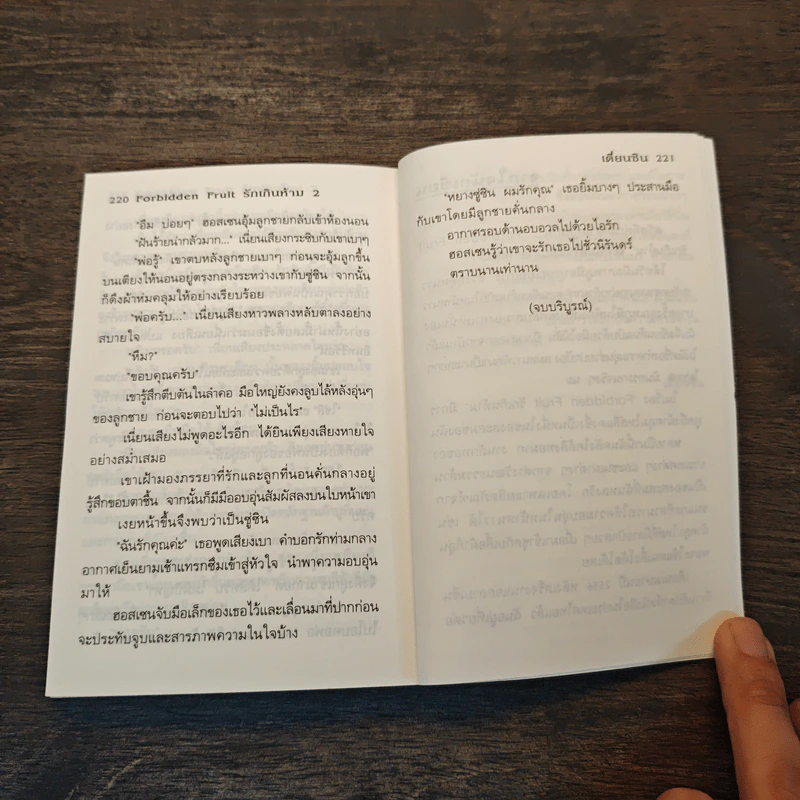 220 Forbidden Fruit รักเกินห้าม 2
"อืม บ่อยๆ" ฮอสเซนอุ้มลูกชายกลับเข้าห้องนอน
"ฝันร้ายน่ากลัวมาก..." เนี่ยนเสียงกระซิบกับเขาเบาๆ
"พ่อรู้" เขาตบหลังลูกชายเบาๆ ก่อนจะอุ้มลูกขึ้น
บนเตียงให้นอนอยู่ตรงกลางระหว่างเขากับซู่ซิน จากนั้น
ก็ดึงผ้าห่มคลุมให้อย่างเรียบร้อย
"พ่อครับ..." เนี่ยนเสียงหาวพลางหลับตาลงอย่าง
สบายใจ
"หืม?"
"ขอบคุณครับ"
เขารู้สึกตีบตันในลำคอ มือใหญ่ยังคงลูบไล้หลังอุ่นๆ
ของลูกชาย ก่อนจะตอบไปว่า "ไม่เป็นไร"
เนี่ยนเสียงไม่พูดอะไรอีก ได้ยินเพียงเสียงหายใจ
อย่างสม่ำเสมอ
เขาเฝ้ามองภรรยาที่รักและลูกที่นอนคั่นกลางอยู่
รู้สึกขอบตาชื้น จากนั้นก็มีมืออบอุ่นสัมผัสลงบนใบหน้าเขา
เงยหน้าขึ้นจึงพบว่าเป็นซู่ซิน
"ฉันรักคุณค่ะ" เธอพูดเสียงเบา คำบอกรักท่ามกลาง
อากาศเย็นยามเช้าแทรกซึมเข้าสู่หัวใจ นำพาความอบอุ่น
มาให้
ฮอสเซนจับมือเล็กของเธอไว้และเลื่อนมาที่ปากก่อน
จะประทับจูบและสารภาพความในใจบ้าง
เตี่ยนซิน 221
"หยางซู่ซิน ผมรักคุณ" เธอยิ้มบางๆ ประสานมือ
กับเขาโดยมีลูกชายคั่นกลาง
อากาศรอบด้านอบอวลไปด้วยไอรัก
ฮอสเซนรู้ว่าเขาจะรักเธอไปชั่วนิรันดร์
ตราบนานเท่านาน
(จบบริบูรณ์)